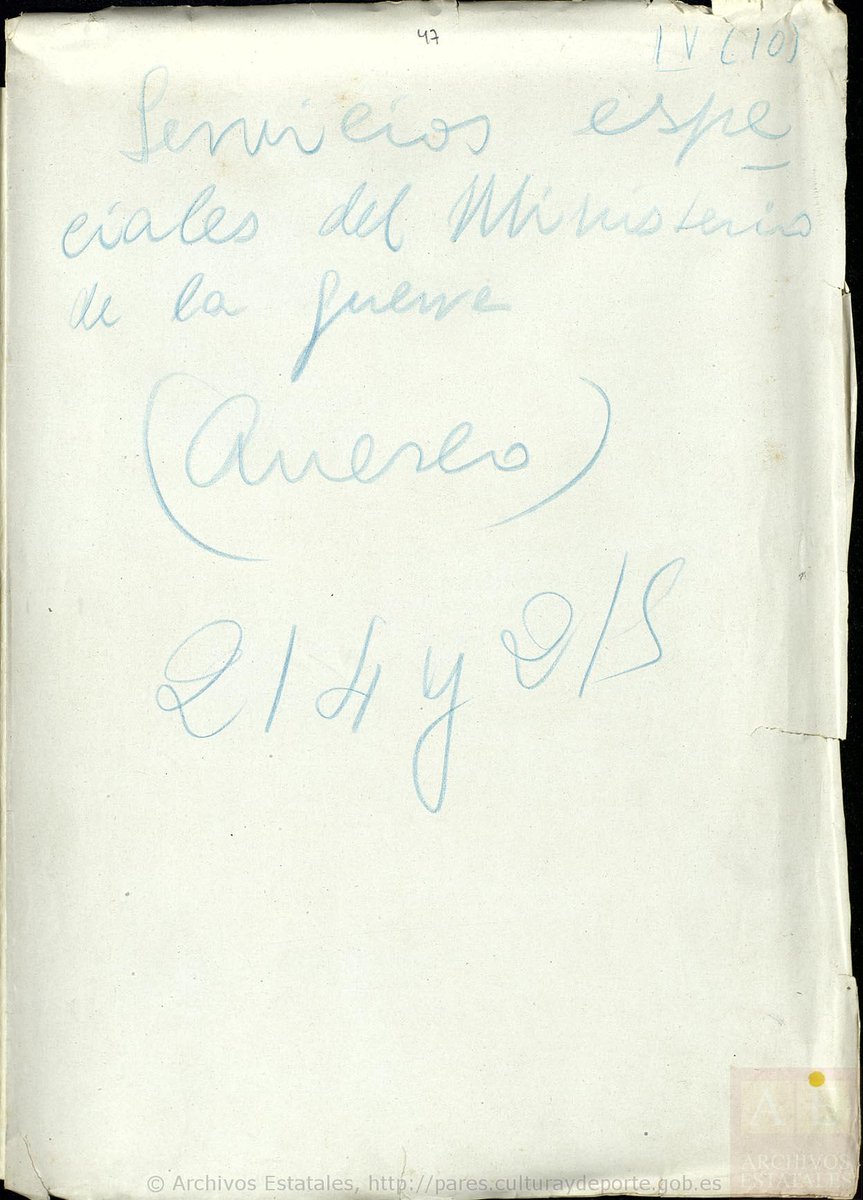 47
IV (10)
Servicios espe
ciales del Ministerio
de la guerra
(Anexo)
214 y 215
© Archivos Estatales, http://pares.culturaydeporte.gob.es
ARCHIVOS
ESTATALES